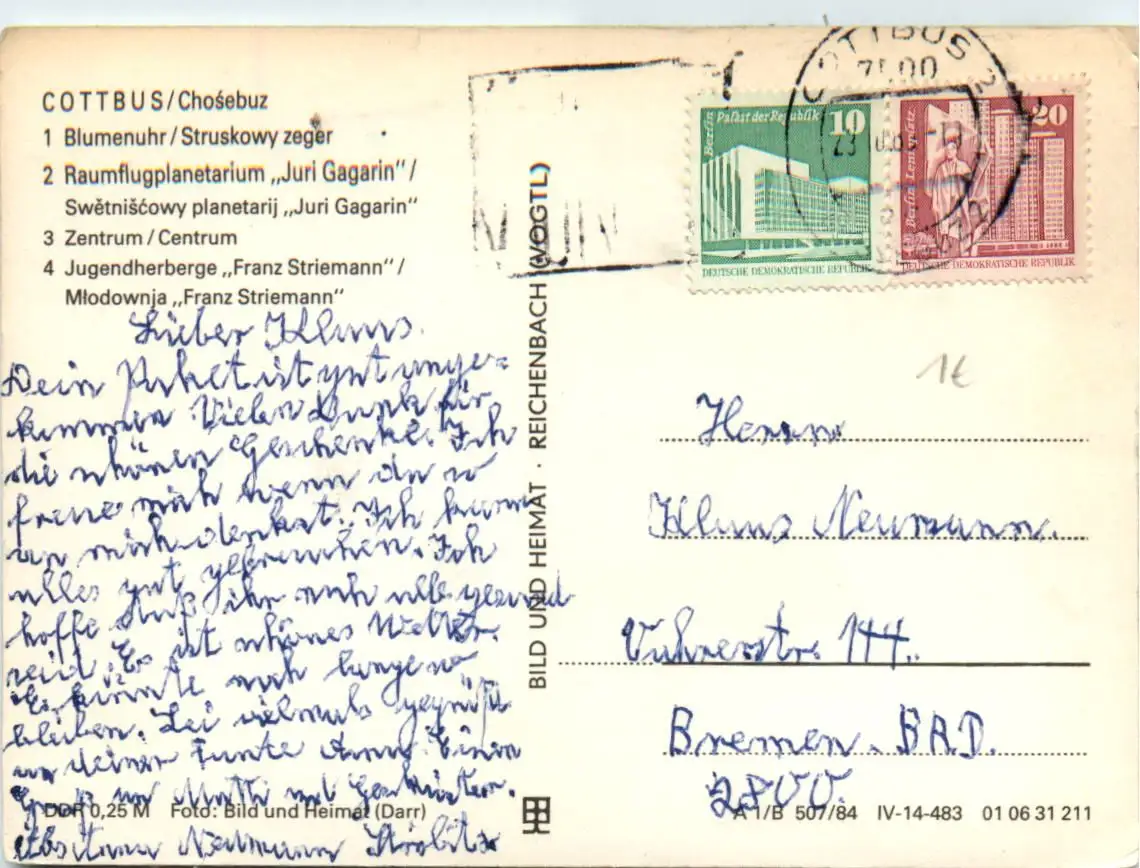 COTTBUS/Chośebuz
1 Blumenuhr/Struskowy zeger
2 Raumflugplanetarium „Juri Gagarin"/
Swětnišćowy planetarij „Juri Gagarin"
3 Zentrum/Centrum
4 Jugendherberge „Franz Striemann"/
Młodownja „Franz Striemann"
Lieber Klaus.
Dein Paket ist gut ange=
kommen Vielen Dank für
die schönen Geschenke. Ich
freue mich wenn du so
an mich denkst. Ich kann
alles gut gebrauchen. Ich
hoffe das ihr auch alle gesund
seid. Es ist schönes Wetter.
Es könnte noch lange so
bleiben. Sei vielmals gegrüßt
von deiner Tante Anna. Einen
Gruß an Mutti und Geschwister.
Neumann
DDR 0,25 M Foto: Bild und Heimat (Darr)
BILD UND HEIMAT · REICHENBACH (VOGTL)
COTTBUS 2
7500
Berlin Palast der Republik 10
DEUTSCHE DEMOKRATISCHE REPUBLIK
Berlin Leninplatz 20
DEUTSCHE DEMOKRATISCHE REPUBLIK
1€
Herrn
Klaus Neumann.
144.
Bremen. BRD.
2800.
A 1/B 507/84 IV-14-483 01 06 31 211